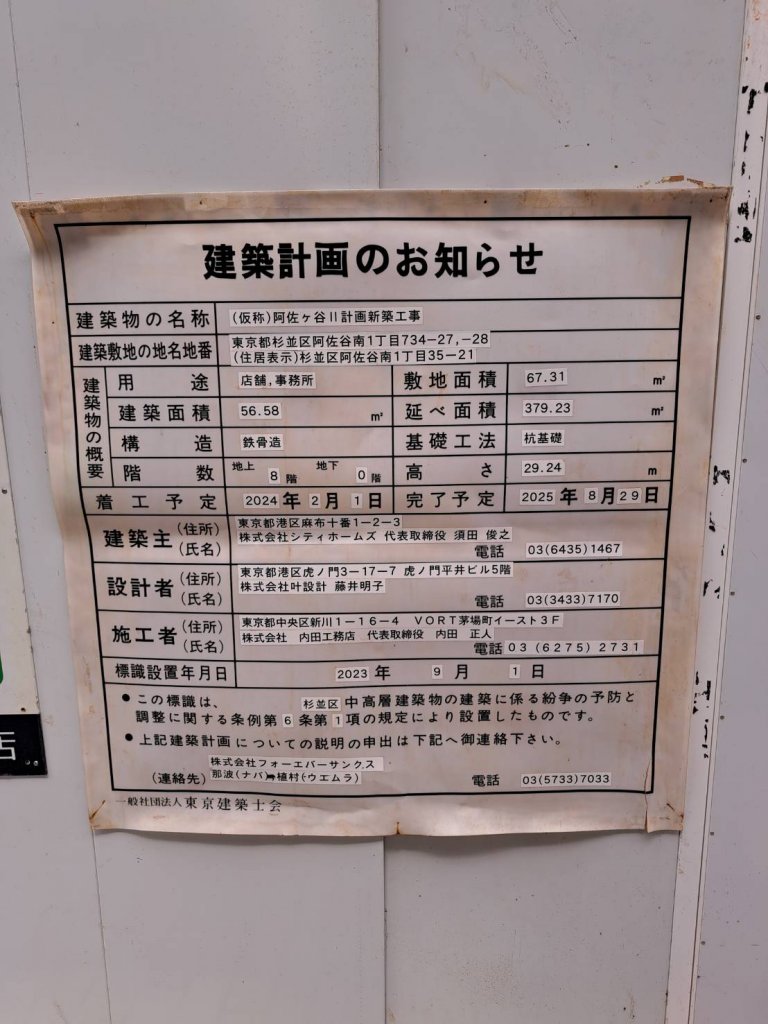 建築計画のお知らせ
建築物の名称 (仮称)阿佐ヶ谷Ⅱ計画新築工事
建築敷地の地名地番 東京都杉並区阿佐谷南1丁目734-27,-28
(住居表示)杉並区阿佐谷南1丁目35-21
建築物の概要
用途 店舗,事務所 敷地面積 67.31 ㎡
建築面積 56.58 ㎡ 延べ面積 379.23 ㎡
構造 鉄骨造 基礎工法 杭基礎
階数 地上 8階 地下 0階 高さ 29.24 m
着工予定 2024年2月1日 完了予定 2025年8月29日
建築主 (住所) 東京都港区麻布十番1-2-3
(氏名) 株式会社シティホームズ 代表取締役 須田 俊之
電話 03(6435)1467
設計者 (住所) 東京都港区虎ノ門3-17-7 虎ノ門平井ビル5階
(氏名) 株式会社叶設計 藤井明子
電話 03(3433)7170
施工者 (住所) 東京都中央区新川1-16-4 VORT茅場町イースト3F
(氏名) 株式会社 内田工務店 代表取締役 内田 正人
電話 03(6275)2731
標識設置年月日 2023年 9月 1日
●この標識は、 杉並区 中高層建築物の建築に係る紛争の予防と
調整に関する条例第6条第1項の規定により設置したものです。
●上記建築計画についての説明の申出は下記へ御連絡下さい。
株式会社フォーエバーサンクス
(連絡先) 那波(ナバ)➡植村(ウエムラ) 電話 03(5733)7033
一般社団法人東京建築士会
店